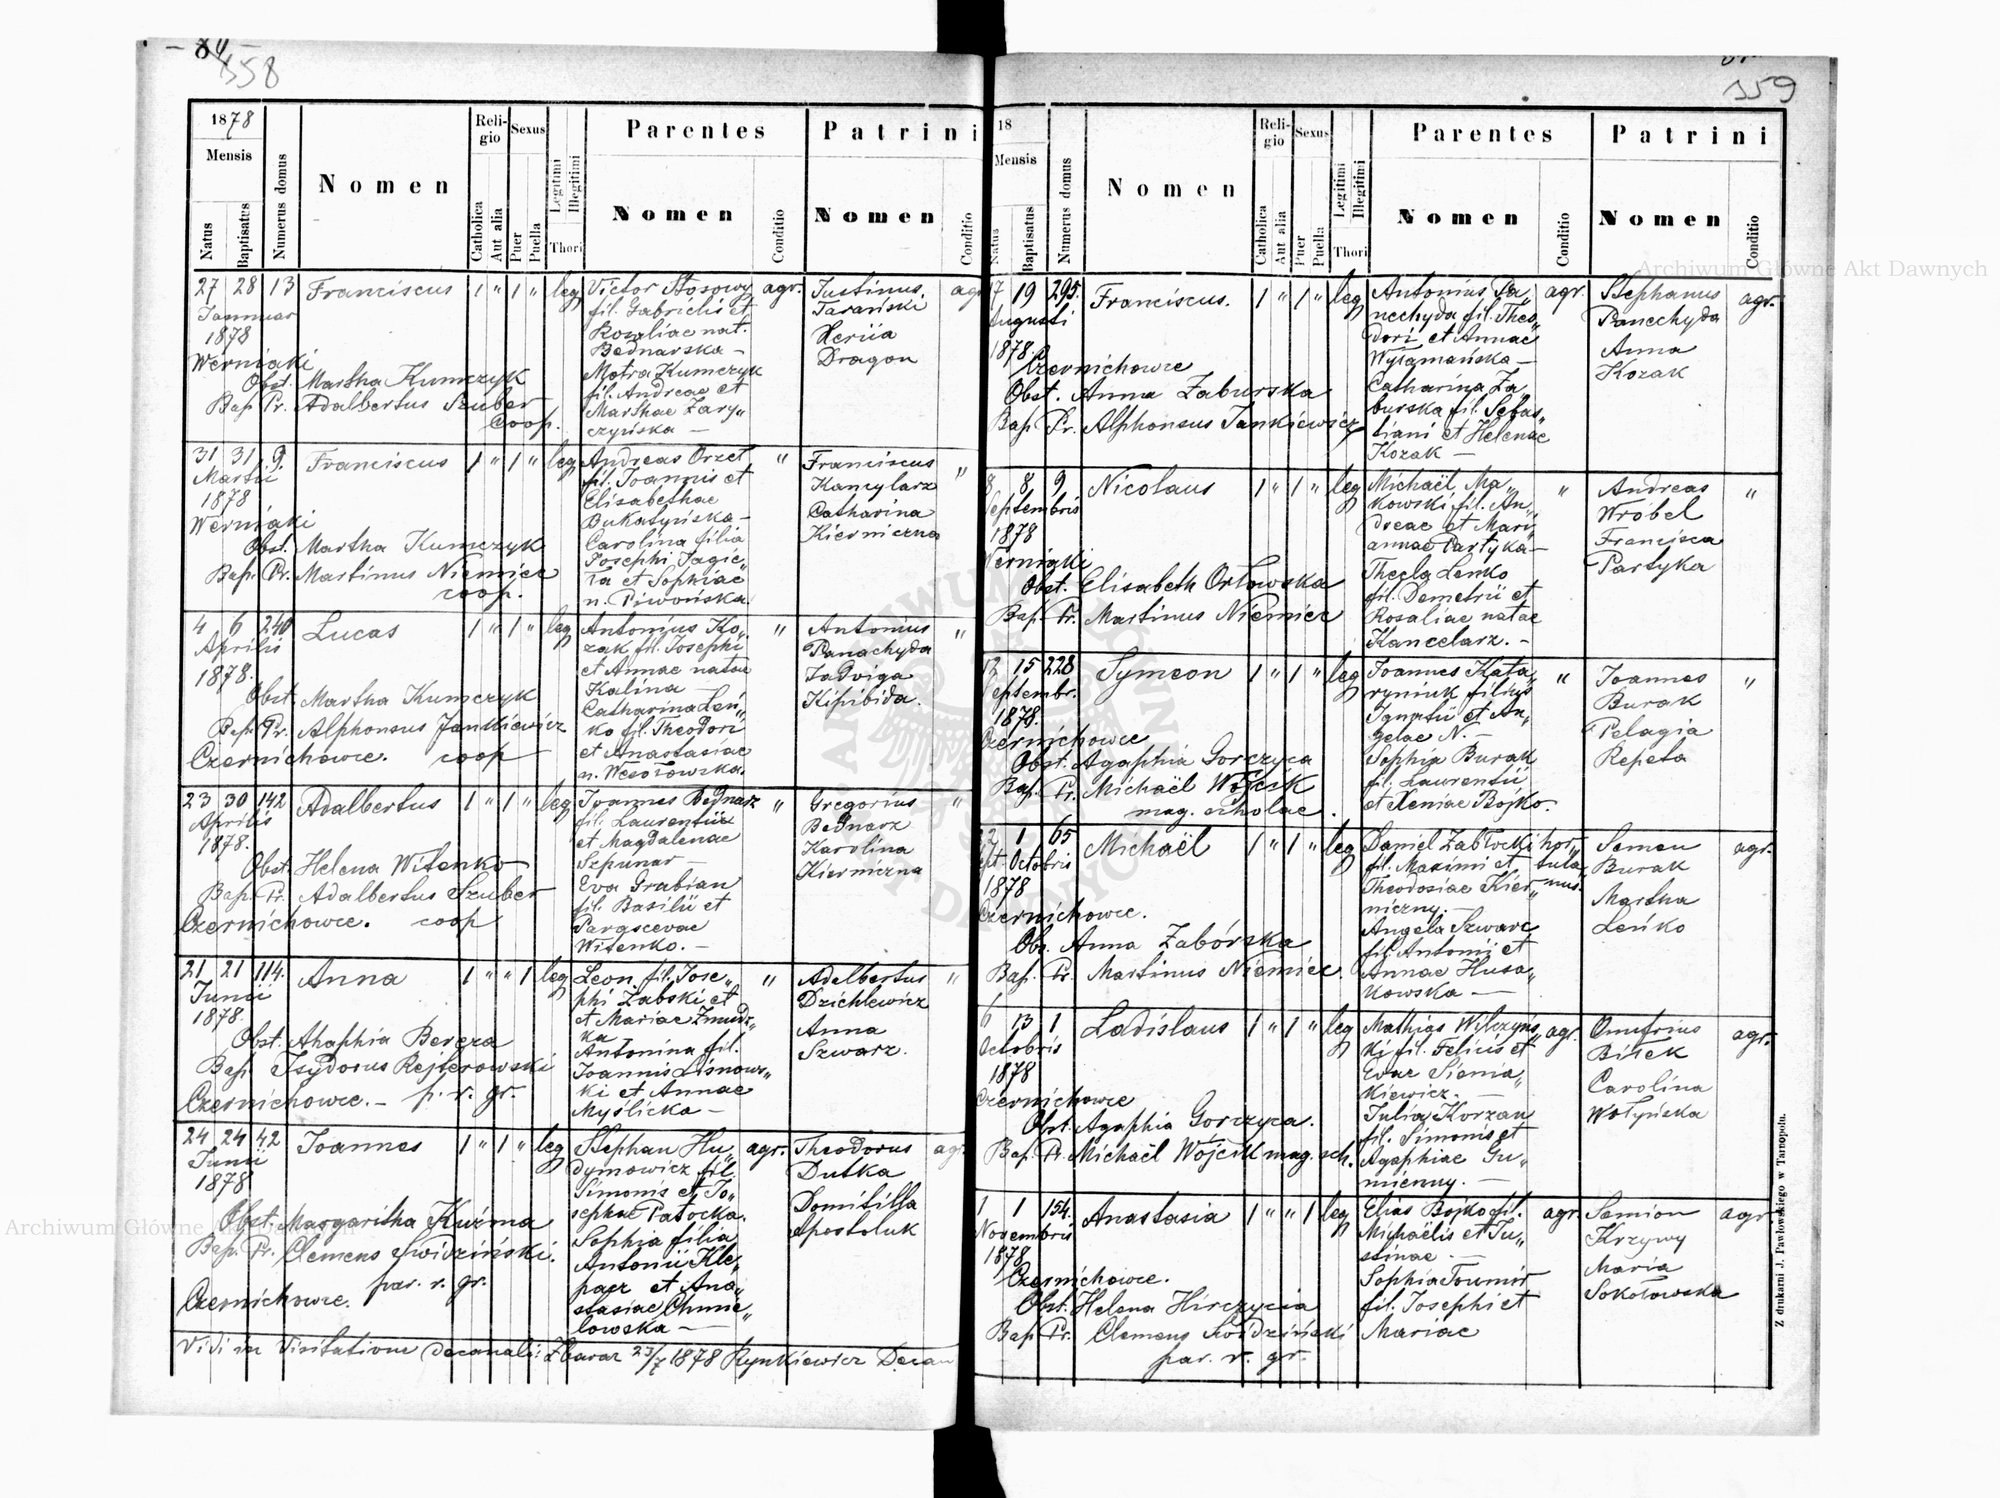 - 84 -
358
1878
Mensis
Natus
Baptisatus
Numerus domus
Nomen
Religio
Catholica
Aut alia
Sexus
Puer
Puella
Legitimi
Illegitimi
Thori
Parentes
Nomen
Conditio
Patrini
Nomen
Conditio
27 28 13 Franciscus 1 " 1 " leg
Januar
1878
Werniaki
Obst. Martha Kumczyk
Bap. Pr. Adalbertus Szuber
Coop.
Victor Stosowy agr.
fil. Gabrielis et
Rosaliae nat.
Bednarska —
Motra Kumczyk
fil. Andreae et
Marthae Zary„
czyńska —
Justinus
Tarański
Xeniia
Dragon
31 31 9. Franciscus 1 " 1 " leg
Martii
1878
Werniaki
Obst. Martha Kumczyk
Bap. Pr. Martinus Niemiec
coop.
Andreas Orzeł "
fil. Joannis et
Elisabethae
Bukatyńska —
Carolina filia
Josephi Jagieł„
ła et Sophiae
n. Piwońska.
Franciscus "
Kancylarz
Catharina
Kierniczna
4 6 240 Lucas 1 " 1 " leg
Aprilis
1878.
Obst. Martha Kumczyk
Bap. Pr. Alphonsus Jankiewicz
Czernichowce. coop
Antonius Ko„ "
zak fil. Josephi
et Annae natae
Kalina —
Catharina Leń„
ko fil. Theodori
et Anastasiae
n. Wesołowska.
Antonius "
Panachyda
Jadviga
Kipibida.
23 30 142 Adalbertus 1 " 1 " leg
Aprilis
1878.
Obst. Helena Witenko
Bap. Pr. Adalbertus Szuber
Czernichowce. coop
Joannes Bednarz "
fil. Laurentii
et Magdalenae
Szpunar —
Eva Grabian
fil. Basilii et
Parascevae
Witenko. —
Gregorius "
Bednarz
Karolina
Kierniczna
21 21 114. Anna 1 " " 1 leg
Junii
1878.
Obst. Ahaphia Bereza
Bap. Isydorus Rejterowski
Czernichowce. — p. r. gr.
Leon. fil. Jose„ "
phi Zabski et
et Mariae Zmudz„
ka
Antonina fil.
Joannis Lisnows„
ki et Annae
Myślicka —
Adalbertus "
Dzichlewicz
Anna
Szwarz.
24 24 42 Joannes 1 " 1 " leg
Junii
1878
Obst. Margaritha Kuźma
Bap. Pr. Clemens Swidziński.
par. r. gr.
Czernichowce.
Stephan Hu„ agr.
dymowicz fil.
Simonis et Jo„
sephae Patocka.
Sophia filia
Antonii Kle„
pacz et Ana„
stasiae Chmie„
lowska —
Theodorus agr
Dutka
Domitilla
Apostoluk
Vidi in Visitatione decanali: Zbaraz 23/7 1878 Rynkiewicz Decan
359
18
Mensis
Natus
Baptisatus
Numerus domus
Nomen
Religio
Catholica
Aut alia
Sexus
Puer
Puella
Legitimi
Illegitimi
Thori
Parentes
Nomen
Conditio
Patrini
Nomen
Conditio
17 19 295. Franciscus. 1 " 1 " leg
Augusti
1878.
Czernichowce
Obst. Anna Zaburska
Bap. Pr. Alphonsus Jankiewicz
Antonius Pa„ agr.
nechyda fil. Theo„
dori et Annae
Wyłamańska —
Catharina Za„
burska fil. Sebas„
tiani et Helenae
Kozak —
Stephanus agr.
Panechyda
Anna
Kozak
8 8 9 Nicolaus 1 " 1 " leg
Septembris
1878
Werniaki
Obst. Elisabeth Orłowska
Bap. Pr. Martinus Niemiec
Michaël Ma„ "
kowski fil. An„
dreae et Mari„
annae Partyka —
Thecla Lenko
fil. Demetrii et
Rosaliae natae
Kancelarz. —
Andreas "
Wróbel
Francisca
Partyka
12 15 228 Symeon 1 " 1 " leg
Septembr.
1878.
Czernichowce
Obst. Agaphia Gorczyca
Bap. Pr. Michaël Wójcik
mag. scholae.
Joannes Kata„ "
ryniuk filius
Ignatii et An„
gelae N. —
Sophia Burak
fil. Laurentii
et Xeniae Bojko.
Joannes "
Burak
Pelagia
Repeta
22 1 65 Michaël 1 " 1 " leg
Sept. Octobris
1878
Czernichowce.
Obs. Anna Zabórska
Bap. Pr. Martinus Niemiec.
Daniel Zabłocki hor„
fil. Maximi et tula„
Theodosiae Kier„ nus.
niczny. —
Angela Szwarc
fil. Antonii et
Annae Husa„
kowska —
Semen agr.
Burak
Martha
Leńko
6 13 1 Ladislaus 1 " 1 " leg
Octobris
1878
Czernichowce
Obst. Agaphia Gorczyca.
Bap. Pr. Michaël Wójcik mag. sch.
Mathias Wilczyńs„ agr.
ki fil. Felicis et
Evae Sienia„
kiewicz. —
Julia Korzan
fil. Simonis et
Agaphiae Gu„
mienny. —
Onufrius agr.
Biłek
Carolina
Wołyńska
1 1 154. Anastasia 1 " " 1 leg
Novembris
1878
Czernichowce.
Obst. Helena Hirczycia
Bap. Pr. Clemens Swidziński
par. r. gr.
Elias Bojko fil. agr.
Michaëlis et Ju„
stinae —
Sophia Towmir
fil. Josephi et
Mariae
Semion agr
Krzywy
Maria
Sokołowska
Z drukarni J. Pawłowskiego w Tarnopolu.
Archiwum Główne Akt Dawnych
Archiwum Główne Akt Dawnych
ARCHIWUM GŁÓWNE AKT DAWNYCH